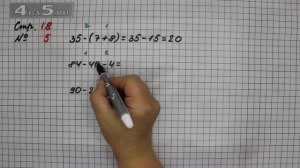 4K5.RU
Стр. 18
№ 5
2 1
35-(7+8)=35-15=20
1 2
84-40-4=
90-2